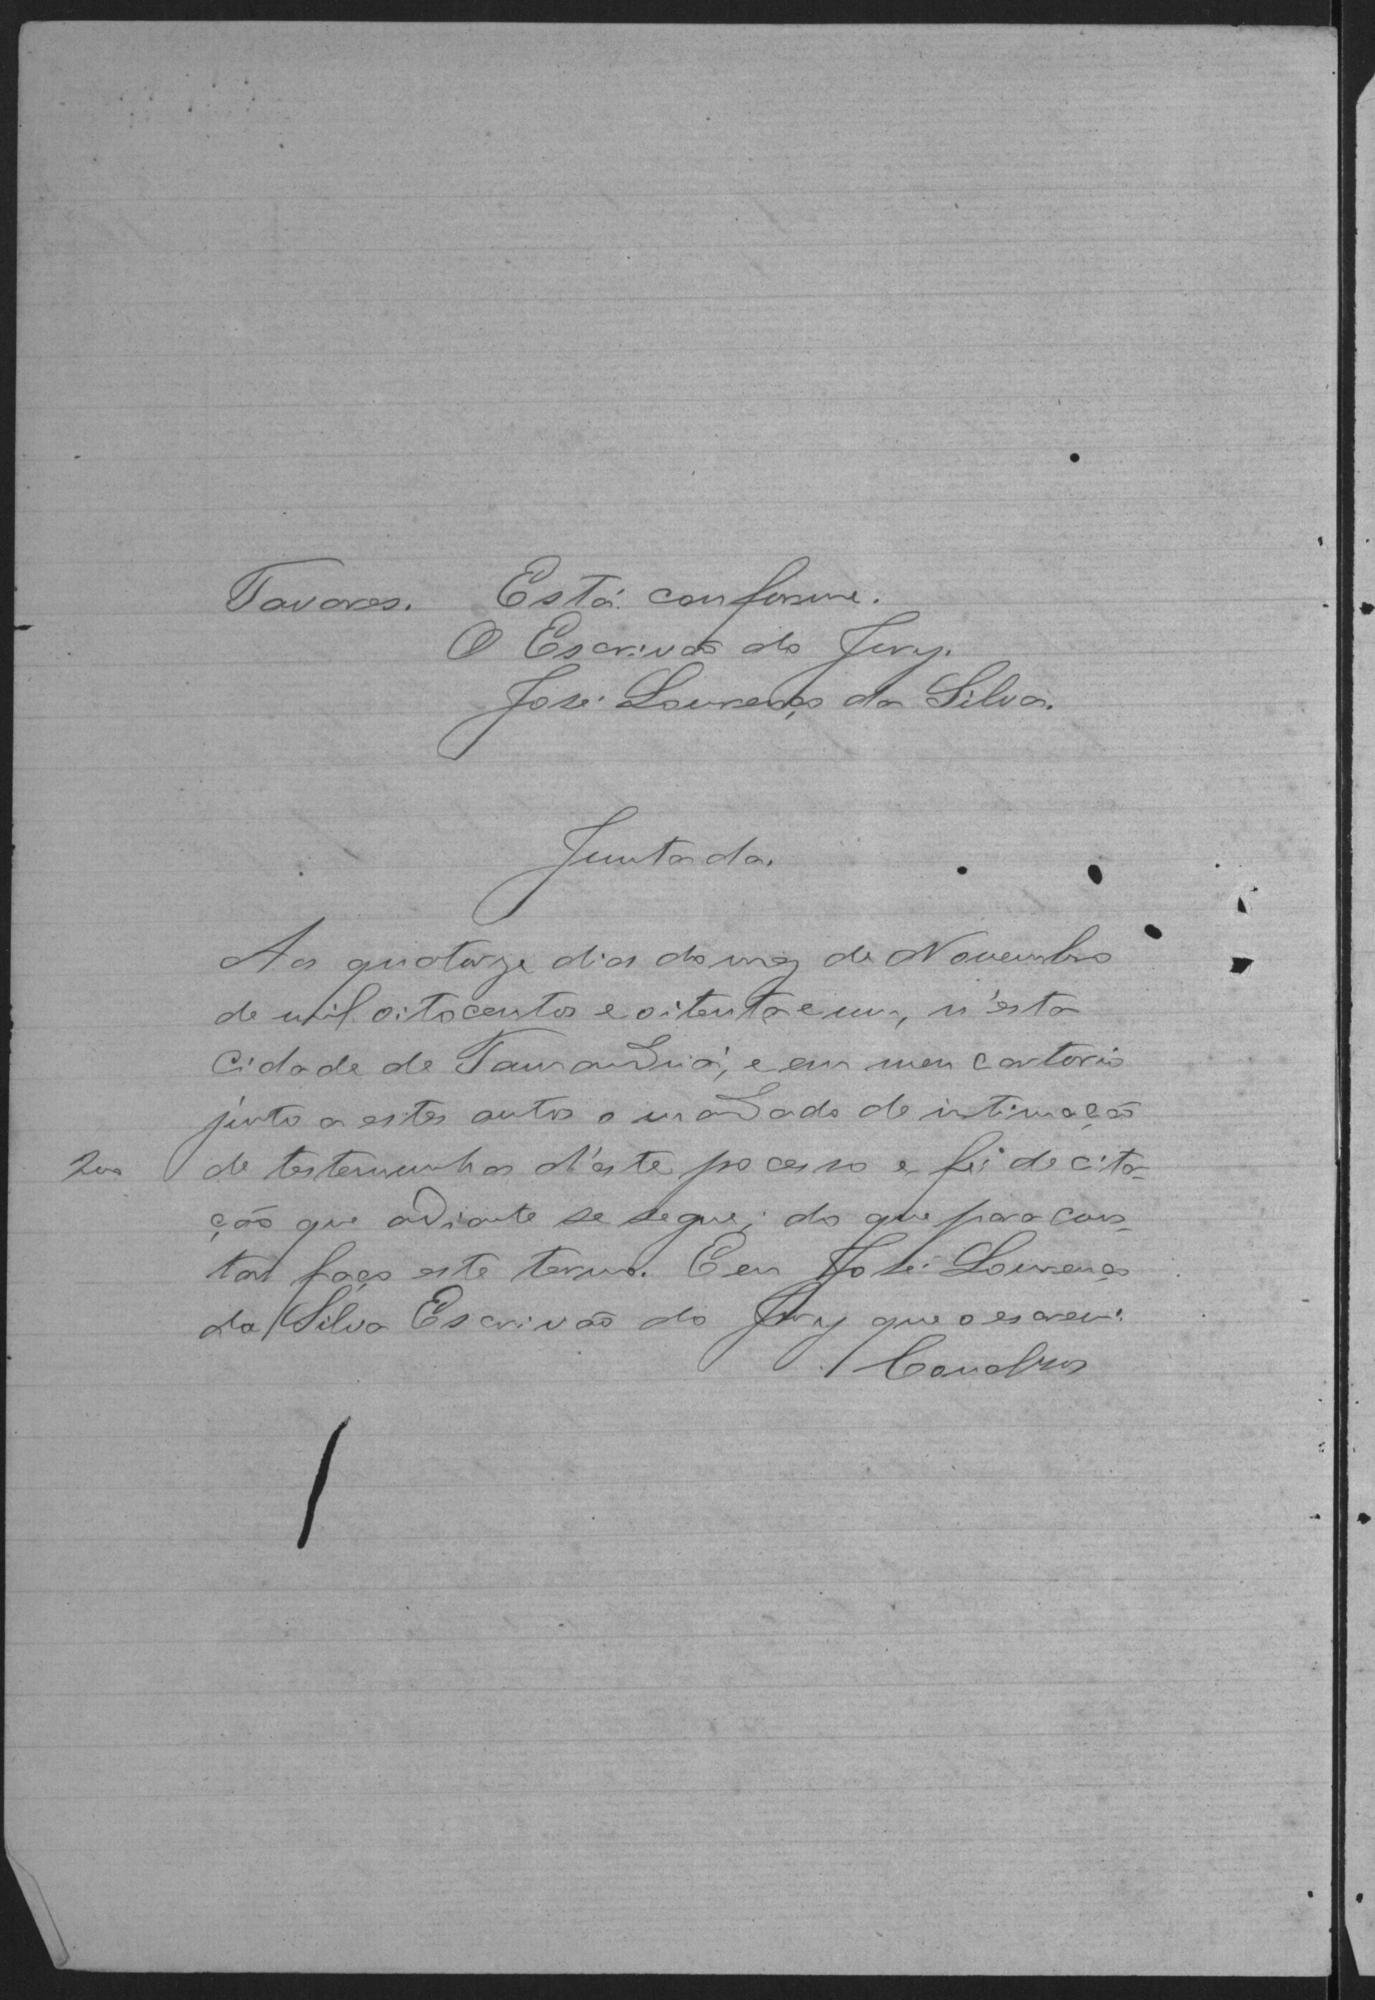 Tavares. Está conforme.
O Escrivão do Jury.
José Lourenço da Silva.
Juntada.
Aos quatorze dias do mez de Novembro
de mil oitocentos e oitenta e um, n'esta
Cidade de Tamanduá, e em meu cartorio
junto a estes autos o mandado de intimação
de testemunhas d'este pocesso e fé de cita-
ção que adiante se segue; do que para cons-
tar faço este termo. Eeu José Lourenço
da Silva Escrivão do Jury que o escrevi.